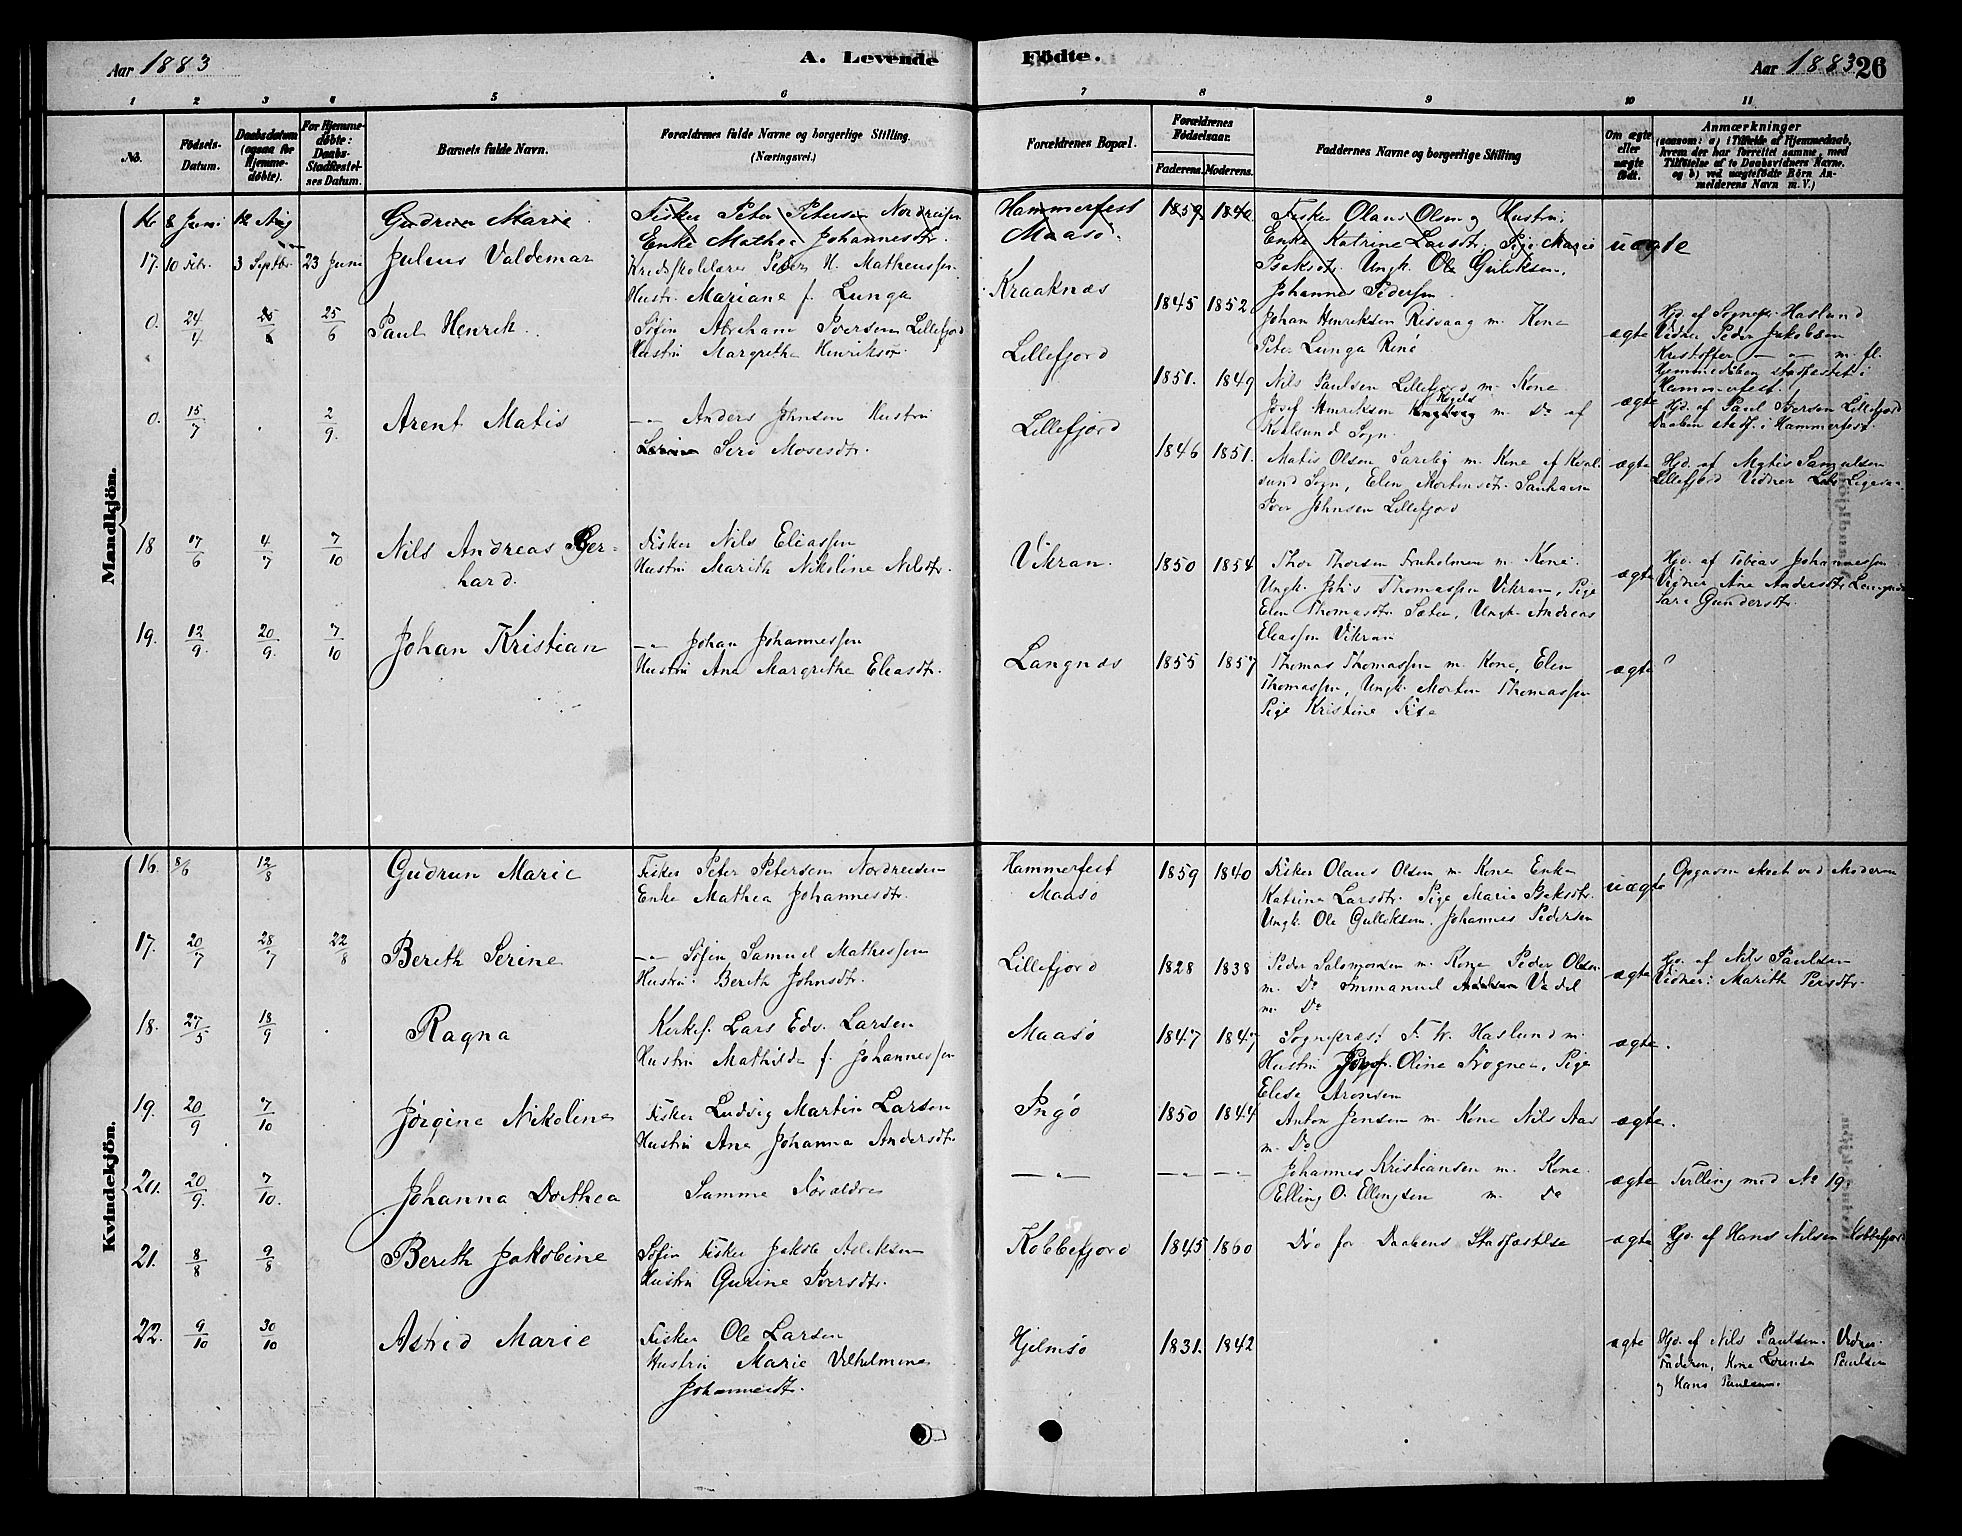 Aar 1883
A. Levende
Fødte.
Aar 1883 26
1 2 3 4 5 6 7 8 9 10 11
No.
Fødsels-
Datum.
Daabsdatum
(ogsaa for
Hjemme-
døbte).
For Hjemme-
døbte:
Daabs-
Stadfæstel-
ses Datum.
Barnets fulde Navn.
Forældrenes fulde Navne og borgerlige Stilling.
(Næringsvei.)
Forældrenes Bopæl.
Forældrenes
Fødselsaar.
Faderens. Moderens.
Faddernes Navne og borgerlige Stilling
Om ægte
eller
uægte
født.
Anmærkninger
(saasom: a) i Tilfælde af Hjemmedaab,
hvem der har forrettet samme, med
Tilføielse af to Daabsvidners Navne,
og b) ved uægtefødte Børn An-
melderens Navn m. V.)
Mandkjøn.
16 8 Juni 12 Aug Gudrun Marie
Fisker Peter Petersen Nordreisen
Enke Mathea Johannesdtr.
Hammerfest
Maasø.
1859 1840
Fisker Olaus Olsen og Hustru,
Enke Katrine Larsdtr. Pige Marie
Isaksdtr. Ungk. Ole Gulliksen,
Johannes Pedersen
uægte
17. 10 Febr. 3 Septbr 23 Juni Julius Valdemar
Kredsskolelærer Peder H. Matheussen
Hustr. Mariane f. Lunga
Kraaknæs
1845 1852
Johan Henriksen Risvaag m. Kone
Peter Lunga Renø
ægte
Hjd. af Sognepr. Haslund
Vidner Peder Jakobsen
Kristoffer — " — m. fl.
0. 24/4 25/6 25/6 Paul Henrik.
Søfin Abraham Iversen Lillefjord
Hustru Margrethe Henriksdtr.
Lillefjord
1851. 1849
Nils Paulsen Lillefjord m. Kone
Josef Henriksen m. Do af
Kvalsund Sogn.
ægte
Hjemmedaaben stadfestet i
Hammerfest
Hjd. af Paul Iversen Lillefjord
0. 15/7 . 2/9. Arent Matis
— " — Anders Johnsen Hustru
Siri Mosesdtr.
Lillefjord
1846 1851.
Matis Olsen m. Kone af Kval-
sund Sogn, Elen Mortensdtr.
Iver Johnsen Lillefjord
ægte
Daaben stadf. i Hammerfest.
Hjd. af Matis Samuelsen
Lillefjord Vidner
18 17/6 4/7 7/10 Nils Andreas Ger-
hard.
Fisker Nils Eliassen
Hustru Marith Nikoline Nilsdtr.
Vikran.
1850 1854
Thor Thorsen Fruholmen m. Kone.
Ungk. Johs Thomassen Vikran, Pige
Elen Thomasdtr. Ungk. Andreas
Eliassen Vikran
ægte
Hjd. af Tobias Johannessen
Vidner Ane Andersdtr Langnæs
Sara Gundersdtr.
19. 12/9. 20/9. 7/10 Johan Kristian
— " — Johan Johannessen
Hustru Ana Margrethe Eliasdtr.
Langnæs
1855 1857
Thomas Thomassen m. Kone, Elen
Thomassen, Ungk. Morten Thomassen
Pige Kristine
ægte
Kvindekjøn.
16. 8/6 12/8 Gudrun Marie
Fisker Peter Petersen Nordreisen
Enke Mathea Johannesdtr.
Hammerfest
Maasø
1859 1840
Fisker Olaus Olsen m. Kone Enke
Katrine Larsdtr. Pige Marie Isaksdtr.
Ungk. Ole Gulliksen. Johannes Pedersen
uægte
Opgaven skeet ved Moderen
17. 20/7 28/7 22/8 Bereth Serine
— " — Søfin, Samuel Mathessen
Hustru: Bereth Johnsdtr.
Lillefjord
1828 1838
Peder Salomonsen m. Kone Peder Olsen
m. Do Immanuel Vadel
m. Do
ægte
Hjd. af Nils Paulsen
Vidner: Marith Persdtr.
18. 27/5 18/9 . Ragna
Kirkes. Lars Edv. Larsen
Hustru Mathilde f. Johannessen
Maasø
1847 1847
Sognepræst F. W. Haslund m.
Hustru Oline Trogner, Pige
Elise Aronsen
ægte.
19. 20/9 7/10 Jørgine Nikoline
Fisker Ludvig Martin Larsen
Hustru Ane Johanna Andersdtr
Ingø
1850 1844
Anton Jensen m. Kone Nils Aas
m. Do
ægte.
20. 20/9. 7/10. Johanna Dorthea
Samme Forældre
— " — — " — — " —
Johannes Kristiansen m. Kone.
Elling O. Ellingsen m. Do
ægte
Tvilling med No 19
21. 8/8 9/8 Bereth Jakobine
Søfin Fisker Jakob Aslaksen
Hustru Gurine Iversdtr.
Kobbefjord
1845 1860
Død før Daabens Stadfæstelse
ægte
Hjd. af Hans Nilsen Kobbefjord
22. 9/10 30/10 Astrid Marie
Fisker Ole Larsen
Hustru Marie Vilhelmine
Johannesdtr.
Hjelmsø
1831. 1842
ægte
Hjd. af Nils Paulsen. Vidner.
Faderen, Kone Lovise Paulsen
og Hans Paulsen.